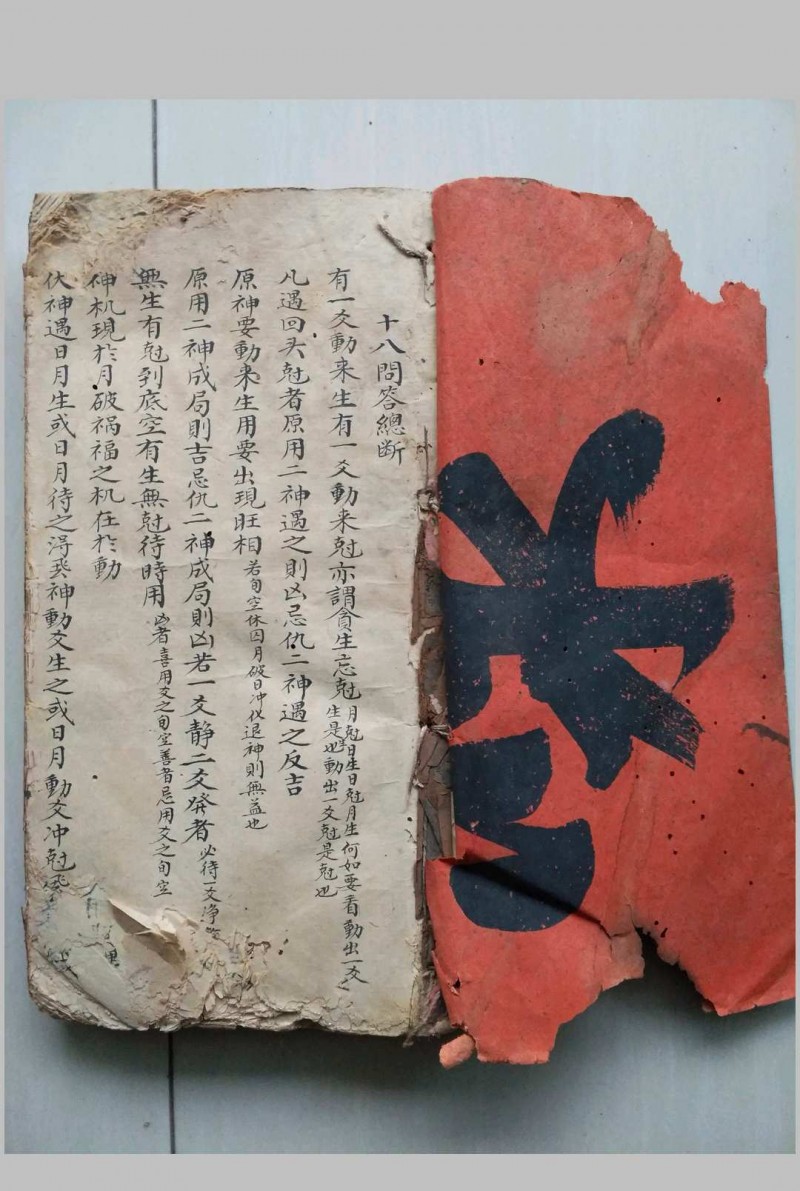 十八問答總断
有一爻動来生有一爻動来尅亦謂貪生忘尅月尅日生日尅月生何如要看動出一爻生是生也動出一爻尅是尅也
凡遇回头尅者原用二神遇之則凶忌仇二神遇之反吉
原神要動来生用要出現旺相若旬空休囚月破日冲化退神則無益也
原用二神成局則吉忌仇二神成局則凶若一爻静二爻發者必待一爻
無生有尅到底空有生無尅待時用凶者喜用爻之旬空善者忌用爻之旬空
神机現於月破祸福之机在於動
伏神遇日月生或日月待之得飛神動爻生之或日月動爻冲尅飛